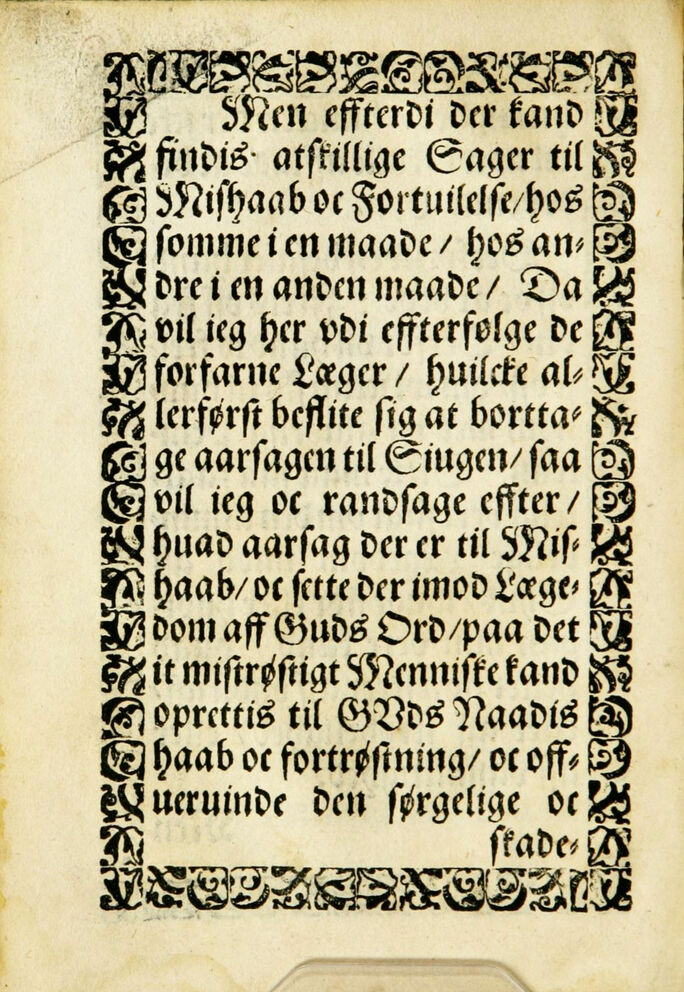 Men effterdi der kand
findis atskillige Sager til
Mishaab oc Fortuilelse/hos
somme i en maade / hos an⸗
dre i en anden maade / Da
vil ieg her vdi effterfølge de
forfarne Læger / huilcke al⸗
lerførst beflite sig at bortta⸗
ge aarsagen til Siugen/ saa
vil ieg oc randsage effter /
huad aarsag der er til Mis⸗
haab/ oc sette der imod Læge⸗
dom aff Guds Ord/paa det
it mistrøstigt Menniske kand
oprettis til GVds Naadis
haab oc fortrøstning/ oc off⸗
ueruinde den sørgelige oc
skade⸗